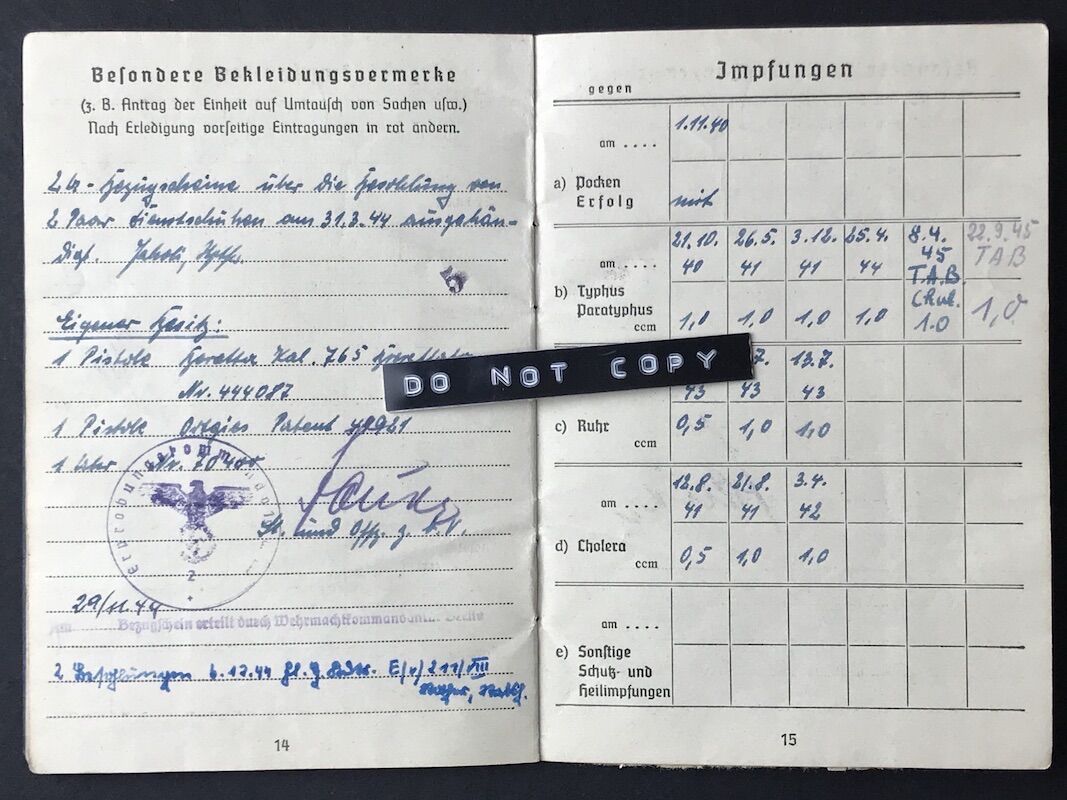 Besondere Bekleidungsvermerke
(z. B. Antrag der Einheit auf Umtausch von Sachen usw.)
Nach Erledigung vorseitige Eintragungen in rot ändern.
2 Bezugscheine über die Besohlung von
2 Paar Dienstschuhen am 31.3.44 ausgehän-
digt.
Eigener Besitz:
1 Pistole Beretta Kal. 765
Nr. 444087
1 Pistole Ortgies Patent
1 Uhr Nr.
Erprobungskommando
2
29/11.44
Am Bezugschein erteilt durch Wehrmachtkommandantur Berlin
2 Besohlungen
14
Impfungen
gegen
am .... 1.11.40
a) Pocken
Erfolg mit
am .... 21.10. 40 26.5. 41 3.12. 41 25.4. 44 8.4. 45 T.A.B. 22.9.45 TAB
b) Typhus
Paratyphus
ccm 1,0 1,0 1,0 1,0 1.0 1,0
DO NOT COPY
43 43 13.7. 43
c) Ruhr
ccm 0,5 1,0 1,0
am .... 12.8. 41 21.8. 41 3.4. 42
d) Cholera
ccm 0,5 1,0 1,0
am ....
e) Sonstige
Schutz- und
Heilimpfungen
15